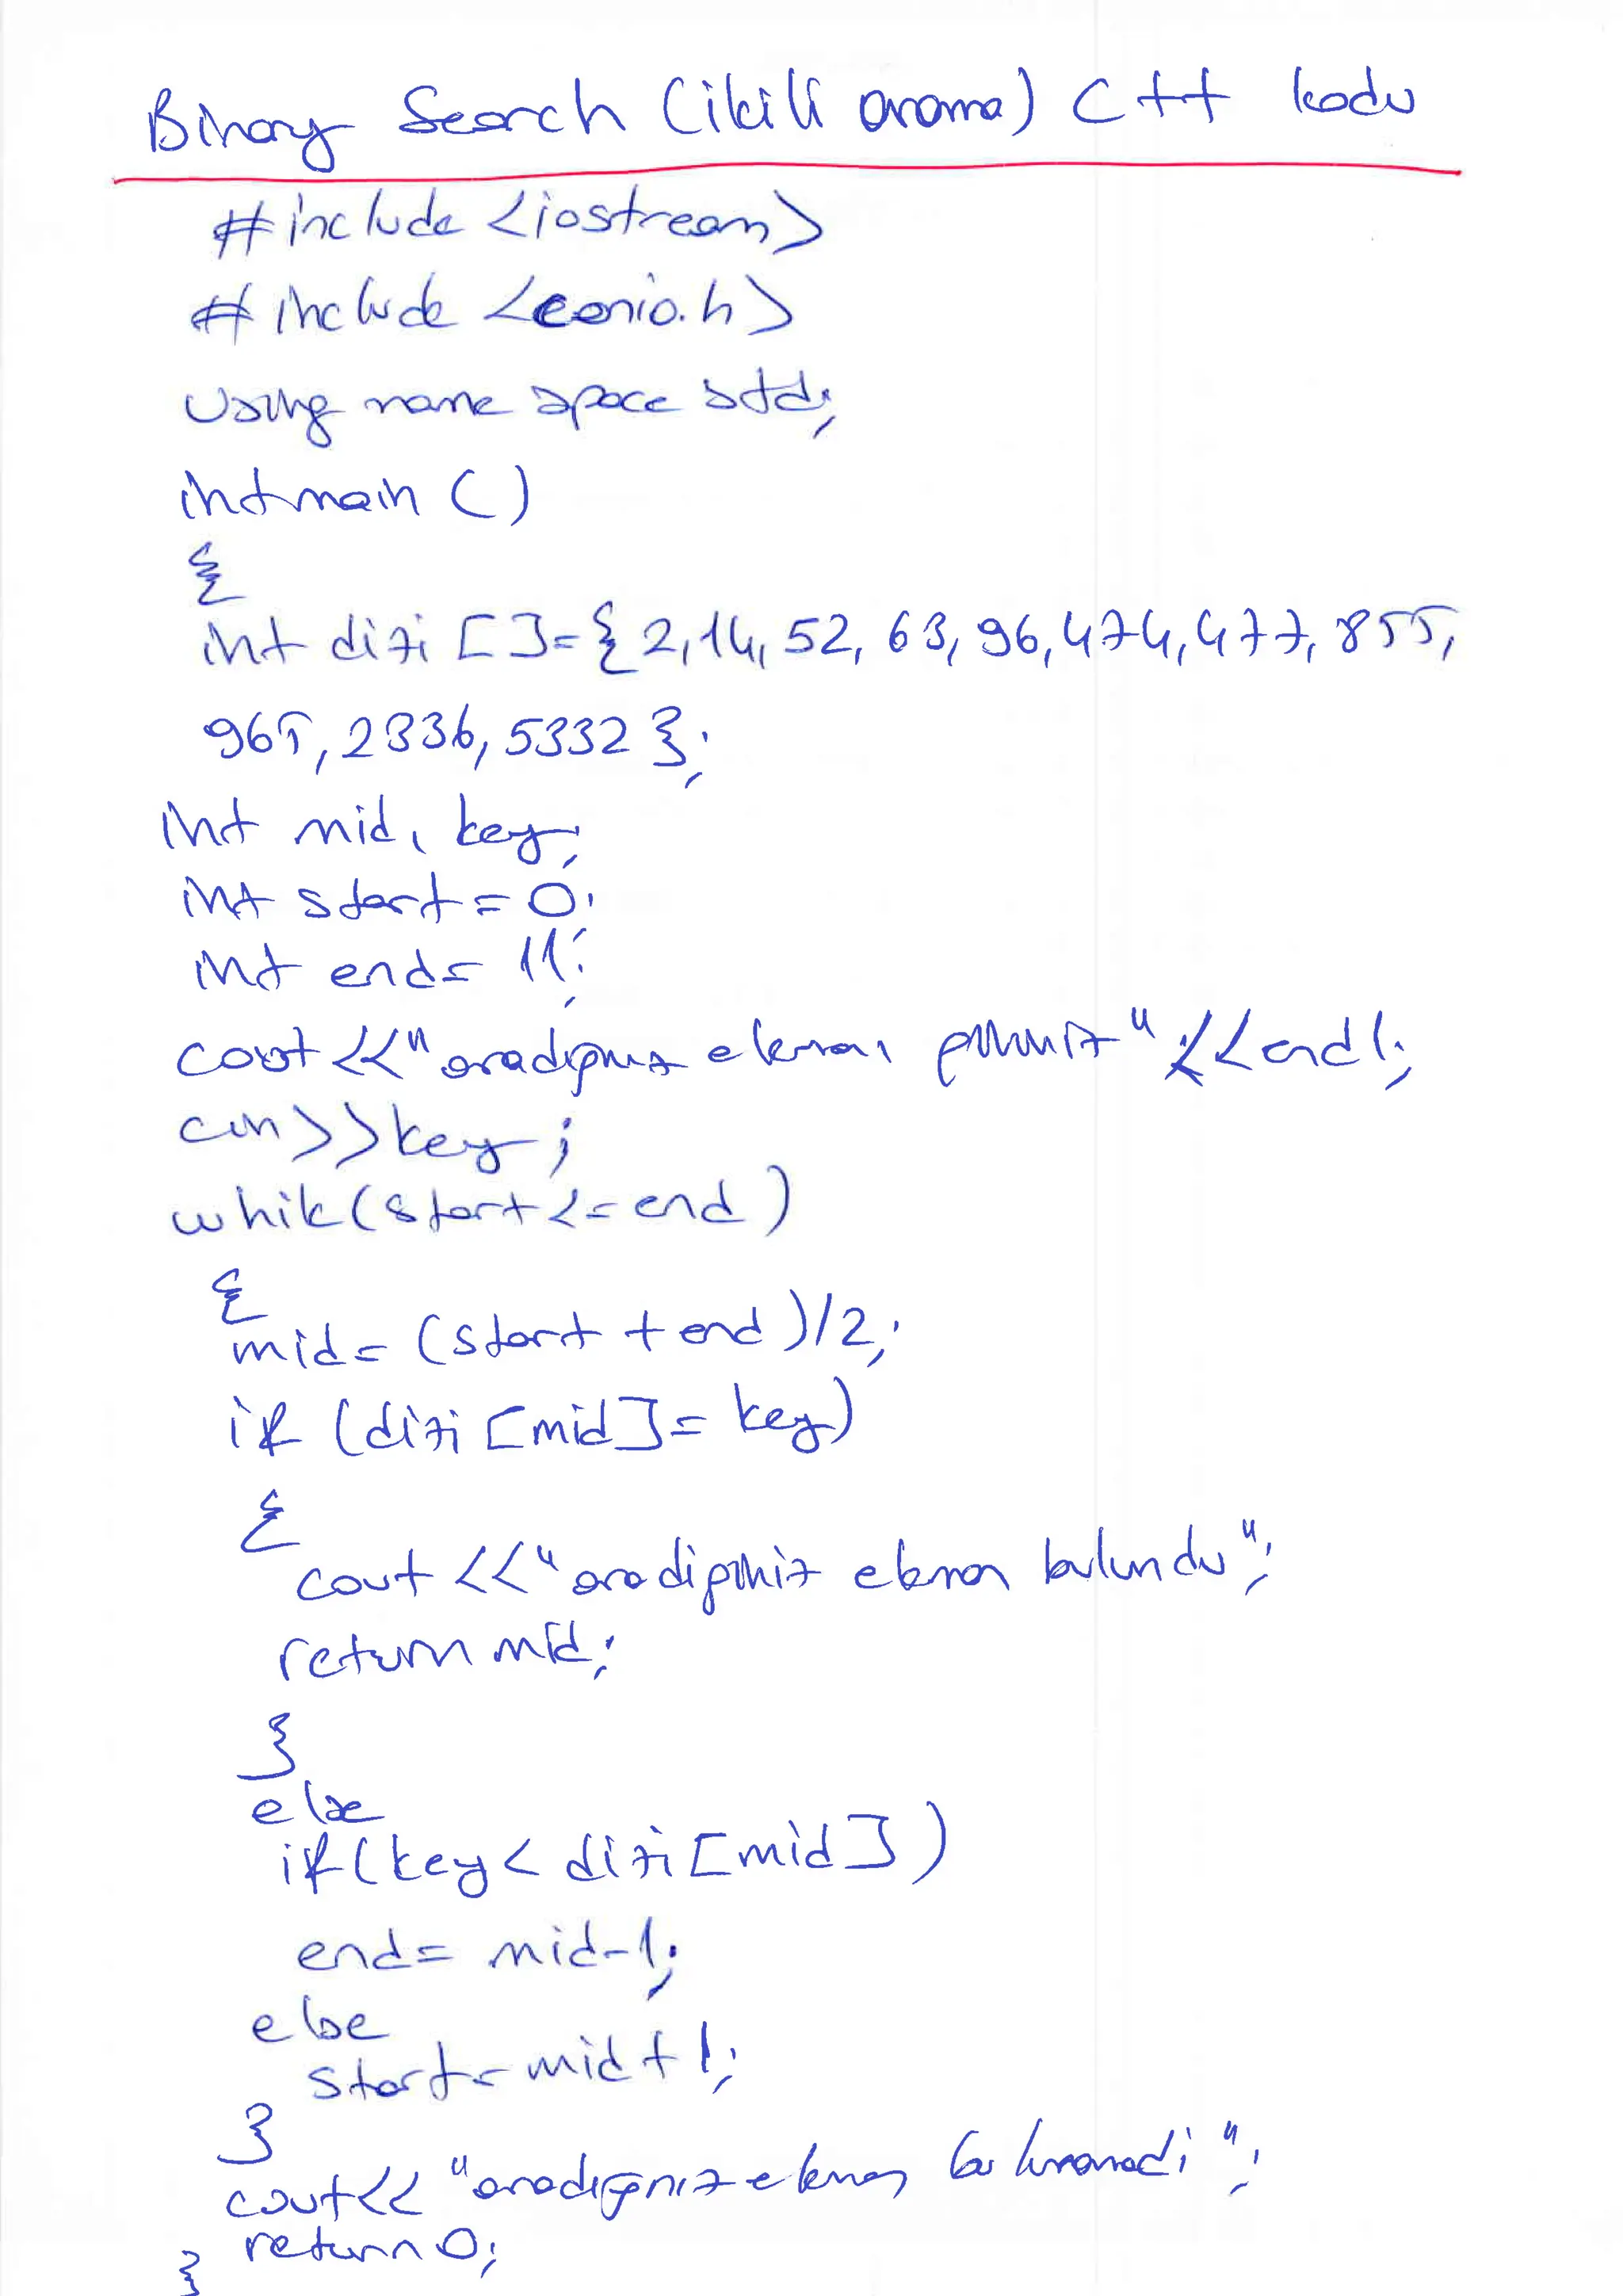 Binary Search (ikili arama) C++ kodu
#include <iostream>
#include <conio.h>
using name space std;
int main ()
{
int dizi []={2,14,52,63,96,474,477,855,
965,2336,5332};
int mid, key;
int start=0;
int end=11;
cout<<"aradiginiz elemani giriniz"<<endl;
cin>>key;
while(start<=end)
{
mid=(start+end)/2;
if (dizi[mid]=key)
{
cout<<"aradiginiz eleman bulundu";
return mid;
}
else
if(key<dizi[mid])
end=mid-1;
else
start=mid+1;
}
cout<<"aradiginiz eleman bulunamadi";
return 0;
}